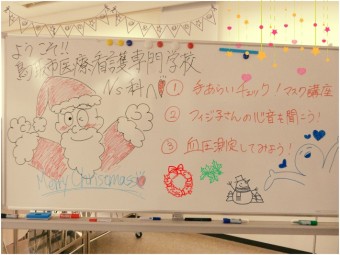 ようこそ!!
鳥取市医療看護専門学校
Ns科へ
① 手あらいチェック!マスク講座
② フィジ子さんの心音を聞こう!
③ 血圧測定してみよう!
Merry Christmas